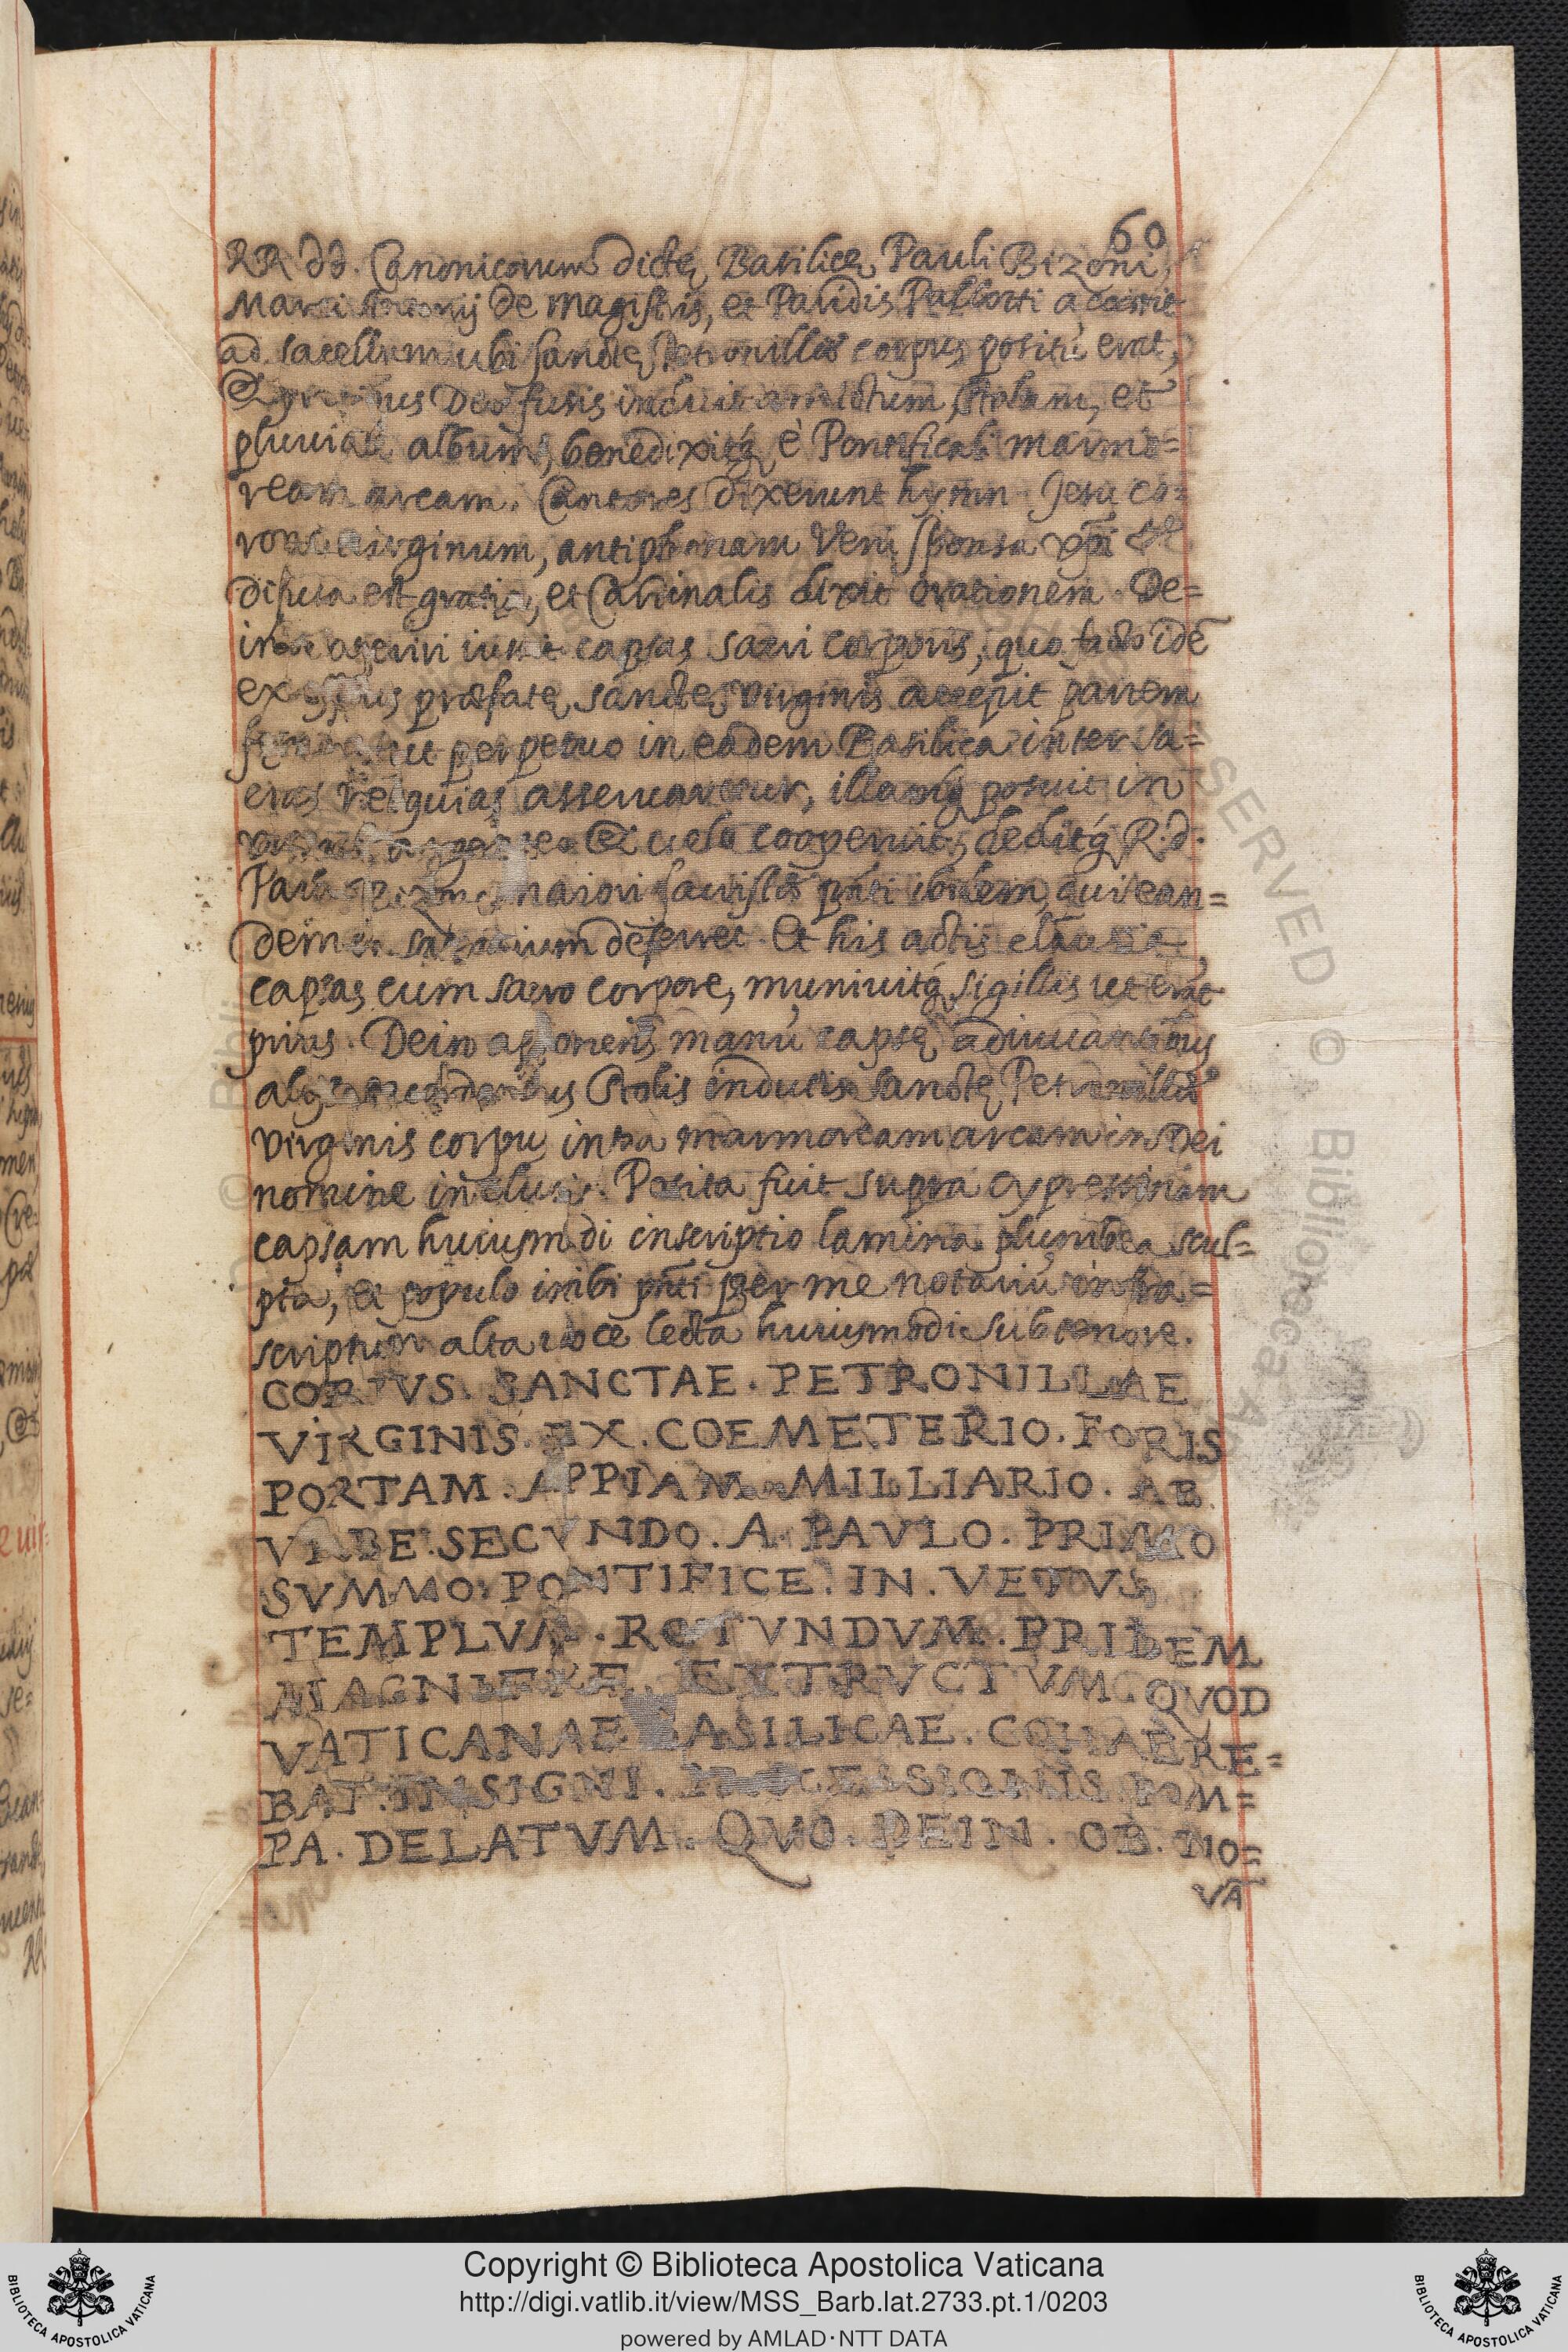 60
RR dd. Canonicorum dictę Basilicę Pauli Bizoni,
Marci Antonij de Magistris, et Paridis Pallotti accessit
ad sacellum ubi sanctę Petronillę corpus positũ erat,
precibus Deo fusis induit amictum, stolam, et
pluviale album, benedixitq́ è Pontificali marmo=
ream arcam. Cantores dixerunt hymn. Jesu co=
rona virginum, antiphonam Veni sponsa xp̃i
difusa est gratia, et Cardinalis dixit orationem. De=
inde aperiri iussit capsas sacri corporis, quo facto idẽ
ex præfatę sanctę virginis accepit partem
ut perpetuo in eadem Basilica inter sa=
cras reliquias asservaretur, illamq́ posuit in
velo cooperuit, deditq́ R. d.
Paulo Bizono maiori sacristę pñti ibidem, qui ean=
dem in sacrarium deferret. Et his actis clausit
capsas cum sacro corpore, munivitq́ sigillis ut erãt
prius. Dein apponens manũ capsę adiuvantibus
stolis indutis sanctę Petronillę
virginis corpus intra marmoream arcam in Dei
nomine inclusit. Posita fuit supra cypressinam
capsam huiusmodi inscriptio lamina plumbea scul=
pta, et populo inibi pñti per me notariũ infra=
scriptum alta voce lecta huiusmodi sub tenore.
CORPVS. SANCTAE. PETRONILLAE
VIRGINIS. EX. COEMETERIO. FORIS
PORTAM. APPIAM. MILLIARIO. AB
VRBE. SECVNDO. A. PAVLO. PRIMO
SVMMO. PONTIFICE. IN. VETVS
TEMPLVM. ROTVNDVM. PRIDEM
MAGNIFICE. EXTRVCTVM. QVOD
VATICANAE BASILICAE. COHAERE=
BAT. INSIGNI. POM=
PA. DELATVM. QVO. DEIN. OB. NO=
VÃ
Copyright © Biblioteca Apostolica Vaticana
http://digi.vatlib.it/view/MSS_Barb.lat.2733.pt.1/0203
powered by AMLAD·NTT DATA
BIBLIOTECA APOSTOLICA VATICANA
BIBLIOTECA APOSTOLICA VATICANA